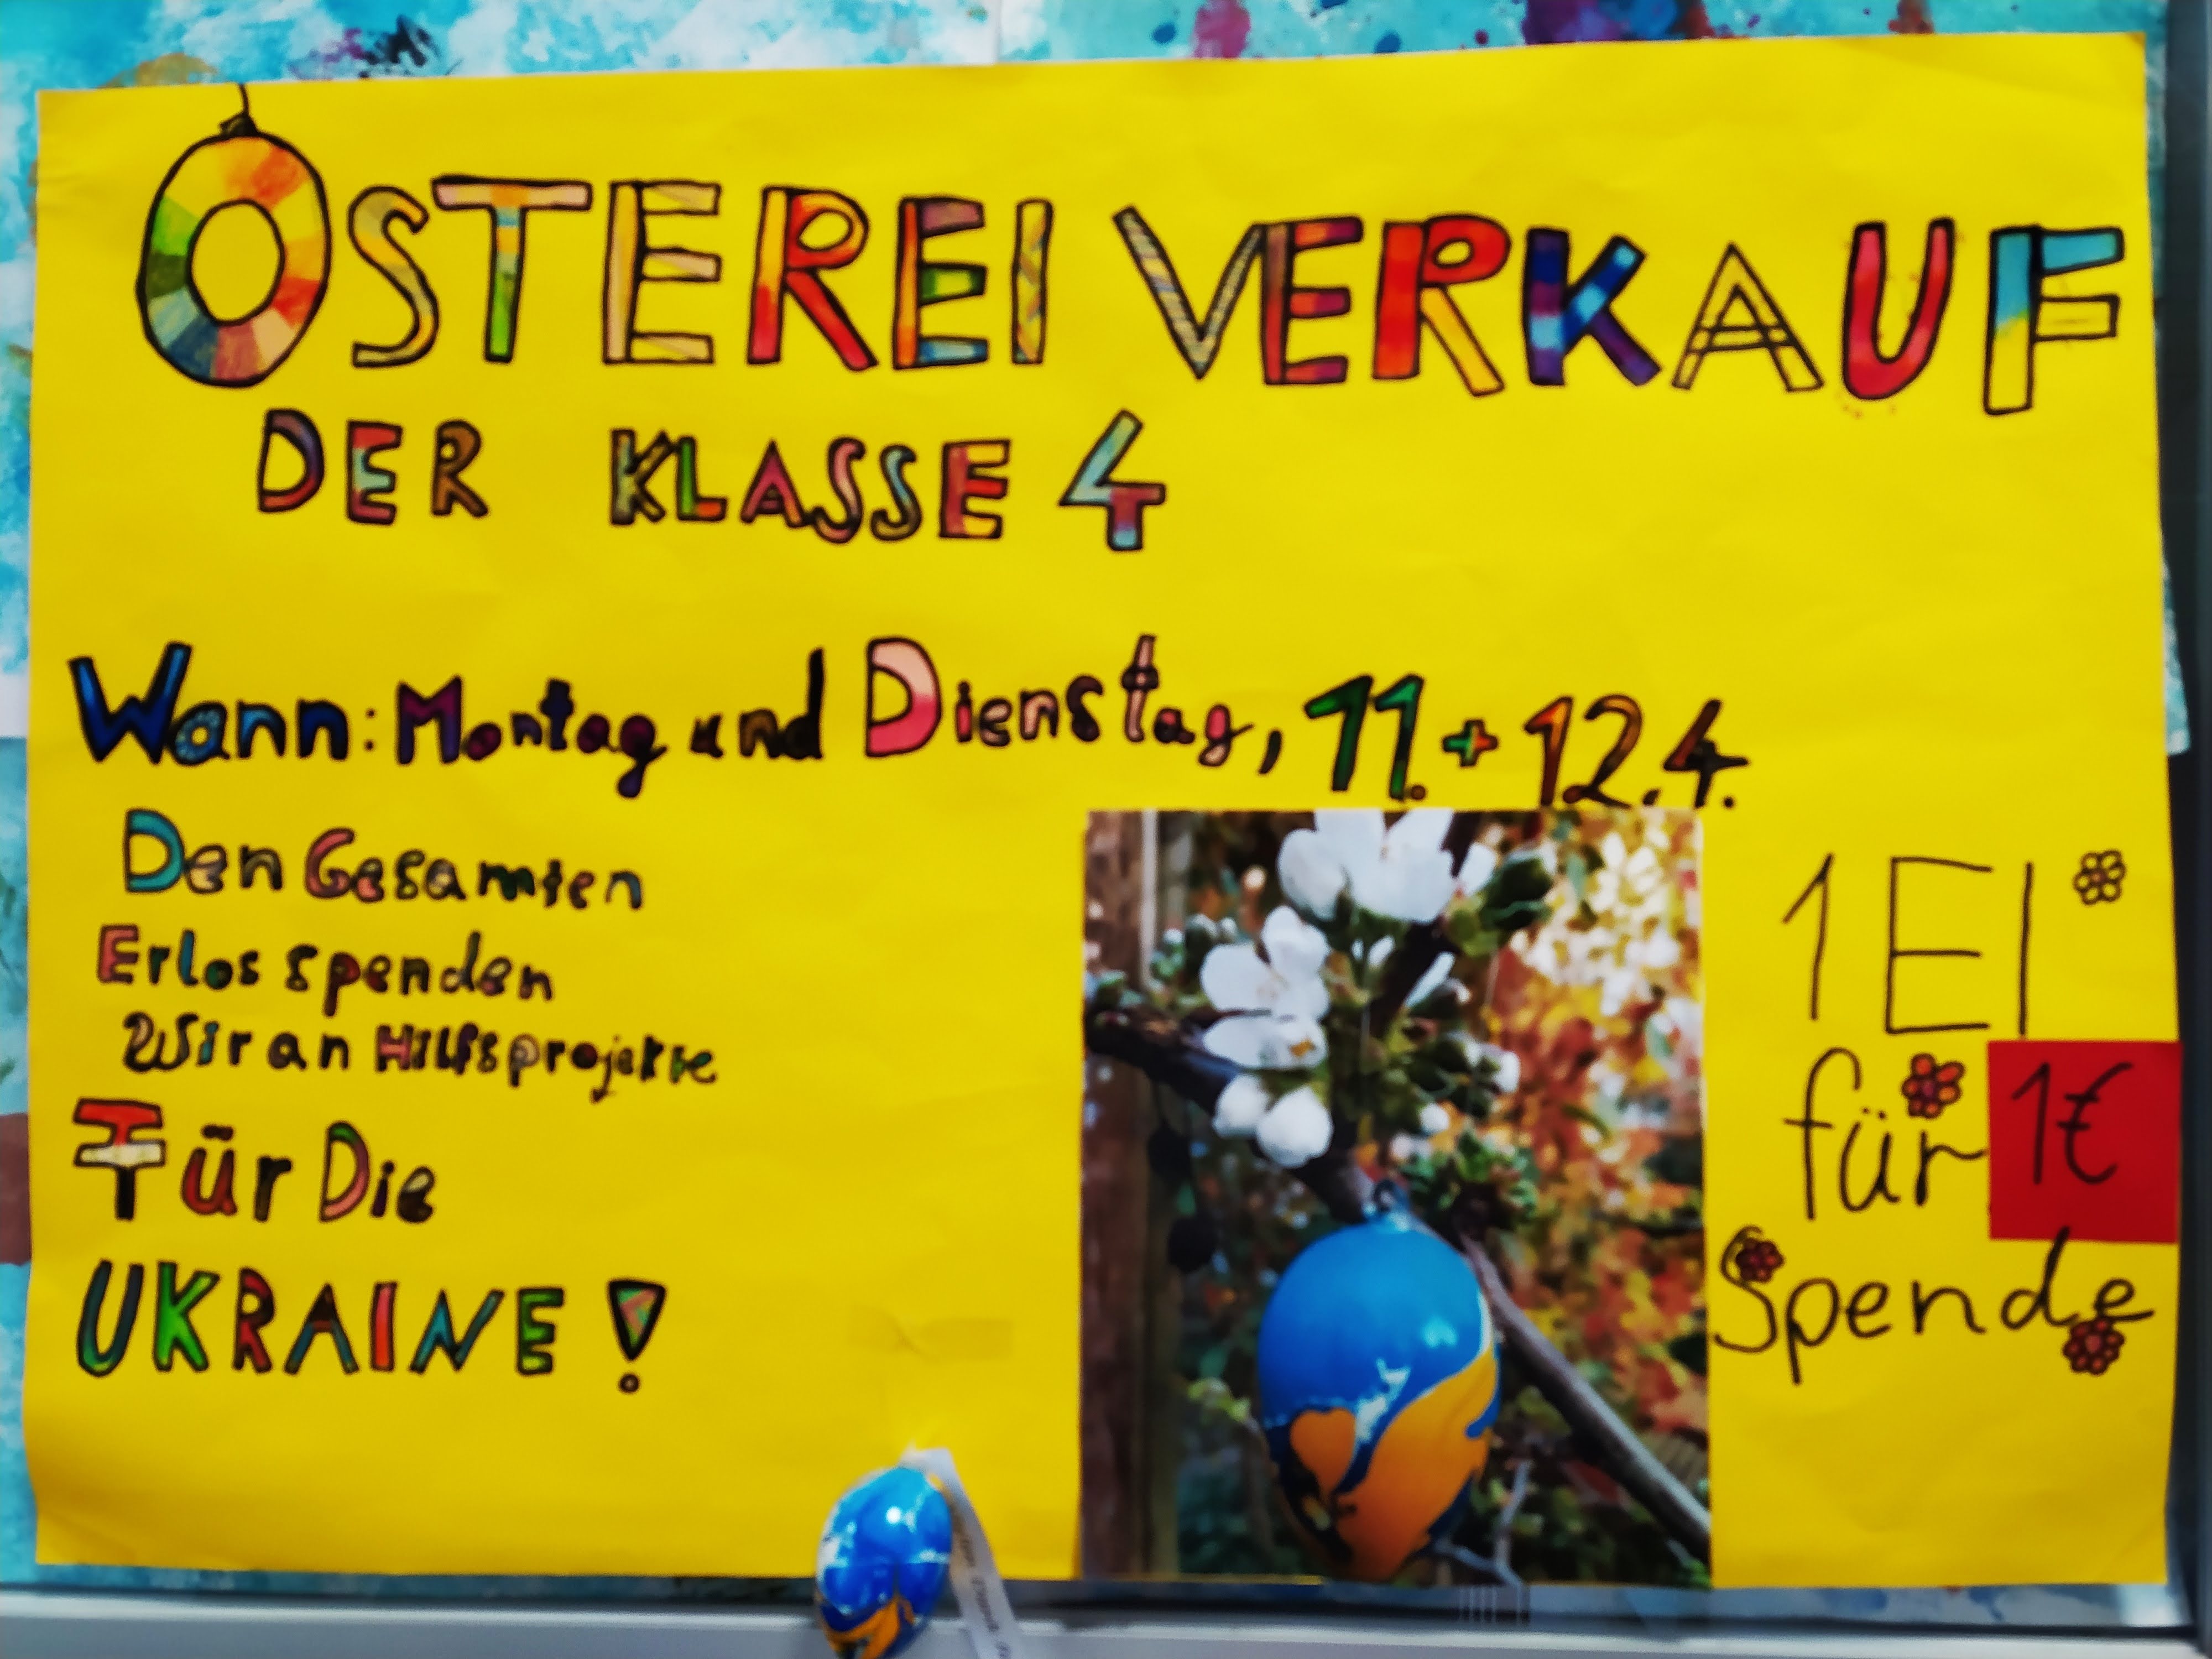 OSTEREI VERKAUF
DER KLASSE 4
Wann: Montag und Dienstag, 11. + 12.4.
Den Gesamten
Erlos spenden
Wir an Hilfsprojekte
Für Die
UKRAINE!
1 EI
für 1€
Spende